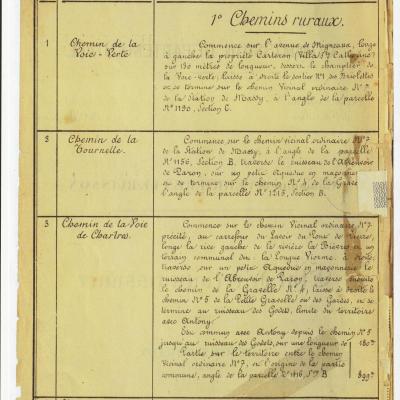 1º Chemins ruraux.
1
Chemin de la
Voie-Verte
Commence sur l'avenue de Migneaux, longe
à gauche la propriété Carteron (Villa Ste Catherine)
sur 130 mètres de longueur, dessert le chantier de
la Voie-verte, laisse à droite le sentier Nº1 des
et se termine sur le chemin Vicinal ordinaire Nº7
de la Station de Massy, à l'angle de la parcelle
Nº1190, Section C.
3
Chemin de la
Tournelle.
Commence sur le chemin vicinal ordinaire Nº7
de la Station de Massy, à l'angle de la parcelle
Nº1156, Section B, traverse le ruisseau de l'Abreuvoir
de Paron, sur un petit Aqueduc en maçonne
et se termine sur le chemin Nº4 de la Grave
à l'angle de la parcelle Nº1215, Section B.
3
Chemin de la Voie
de Chartres.
Commence sur le chemin Vicinal ordinaire Nº7
précité, au carrefour du Lavoir du Pont de Bièvre,
longe la rive gauche de la rivière la Bièvre et un
terrain communal dit: la Longue Vierme, à droite,
traverse sur un petit Aqueduc en maçonnerie le
ruisseau de l'Abreuvoir de Paron, traverse ensuite
le chemin de la Gravelle Nº4, laisse à droite le
chemin Nº5 de la Petite Gravelle ou des Godets, et se
termine au ruisseau des Godets, limite du territoire
avec Antony.
Est commun avec Antony depuis le chemin Nº5
jusqu'au ruisseau des Godets, sur une longueur de
180m
Partie sur le territoire entre le chemin
Vicinal ordinaire Nº7, et l'origine de la partie
commune, angle de la parcelle Nº1116, Son B
899m